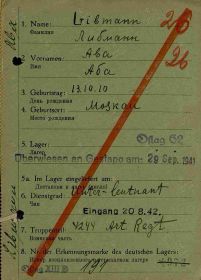 1. Name: Libmann
Фамилия Либманн
2. Vornames: Aba
Имя Аба
3. Geburtstag: 13.10.10
День рождения
4. Geburtsort: Moskau
Место рождения
5. Lager: Oflag 62
Лагерь
Überwiesen an Gestapo am 29 Sep. 1941
5a. Im Lager eingeliefert am:
Доставлен в лагерь
6. Dienstgrad: Unter-leutnant
Чин
Eingang 20.8.42
7. Truppenteil: Art Regt
Воинская часть
8. Nr. der Erkennungsmarke des deutschen Lagers:
XIII B
26
26
Aba